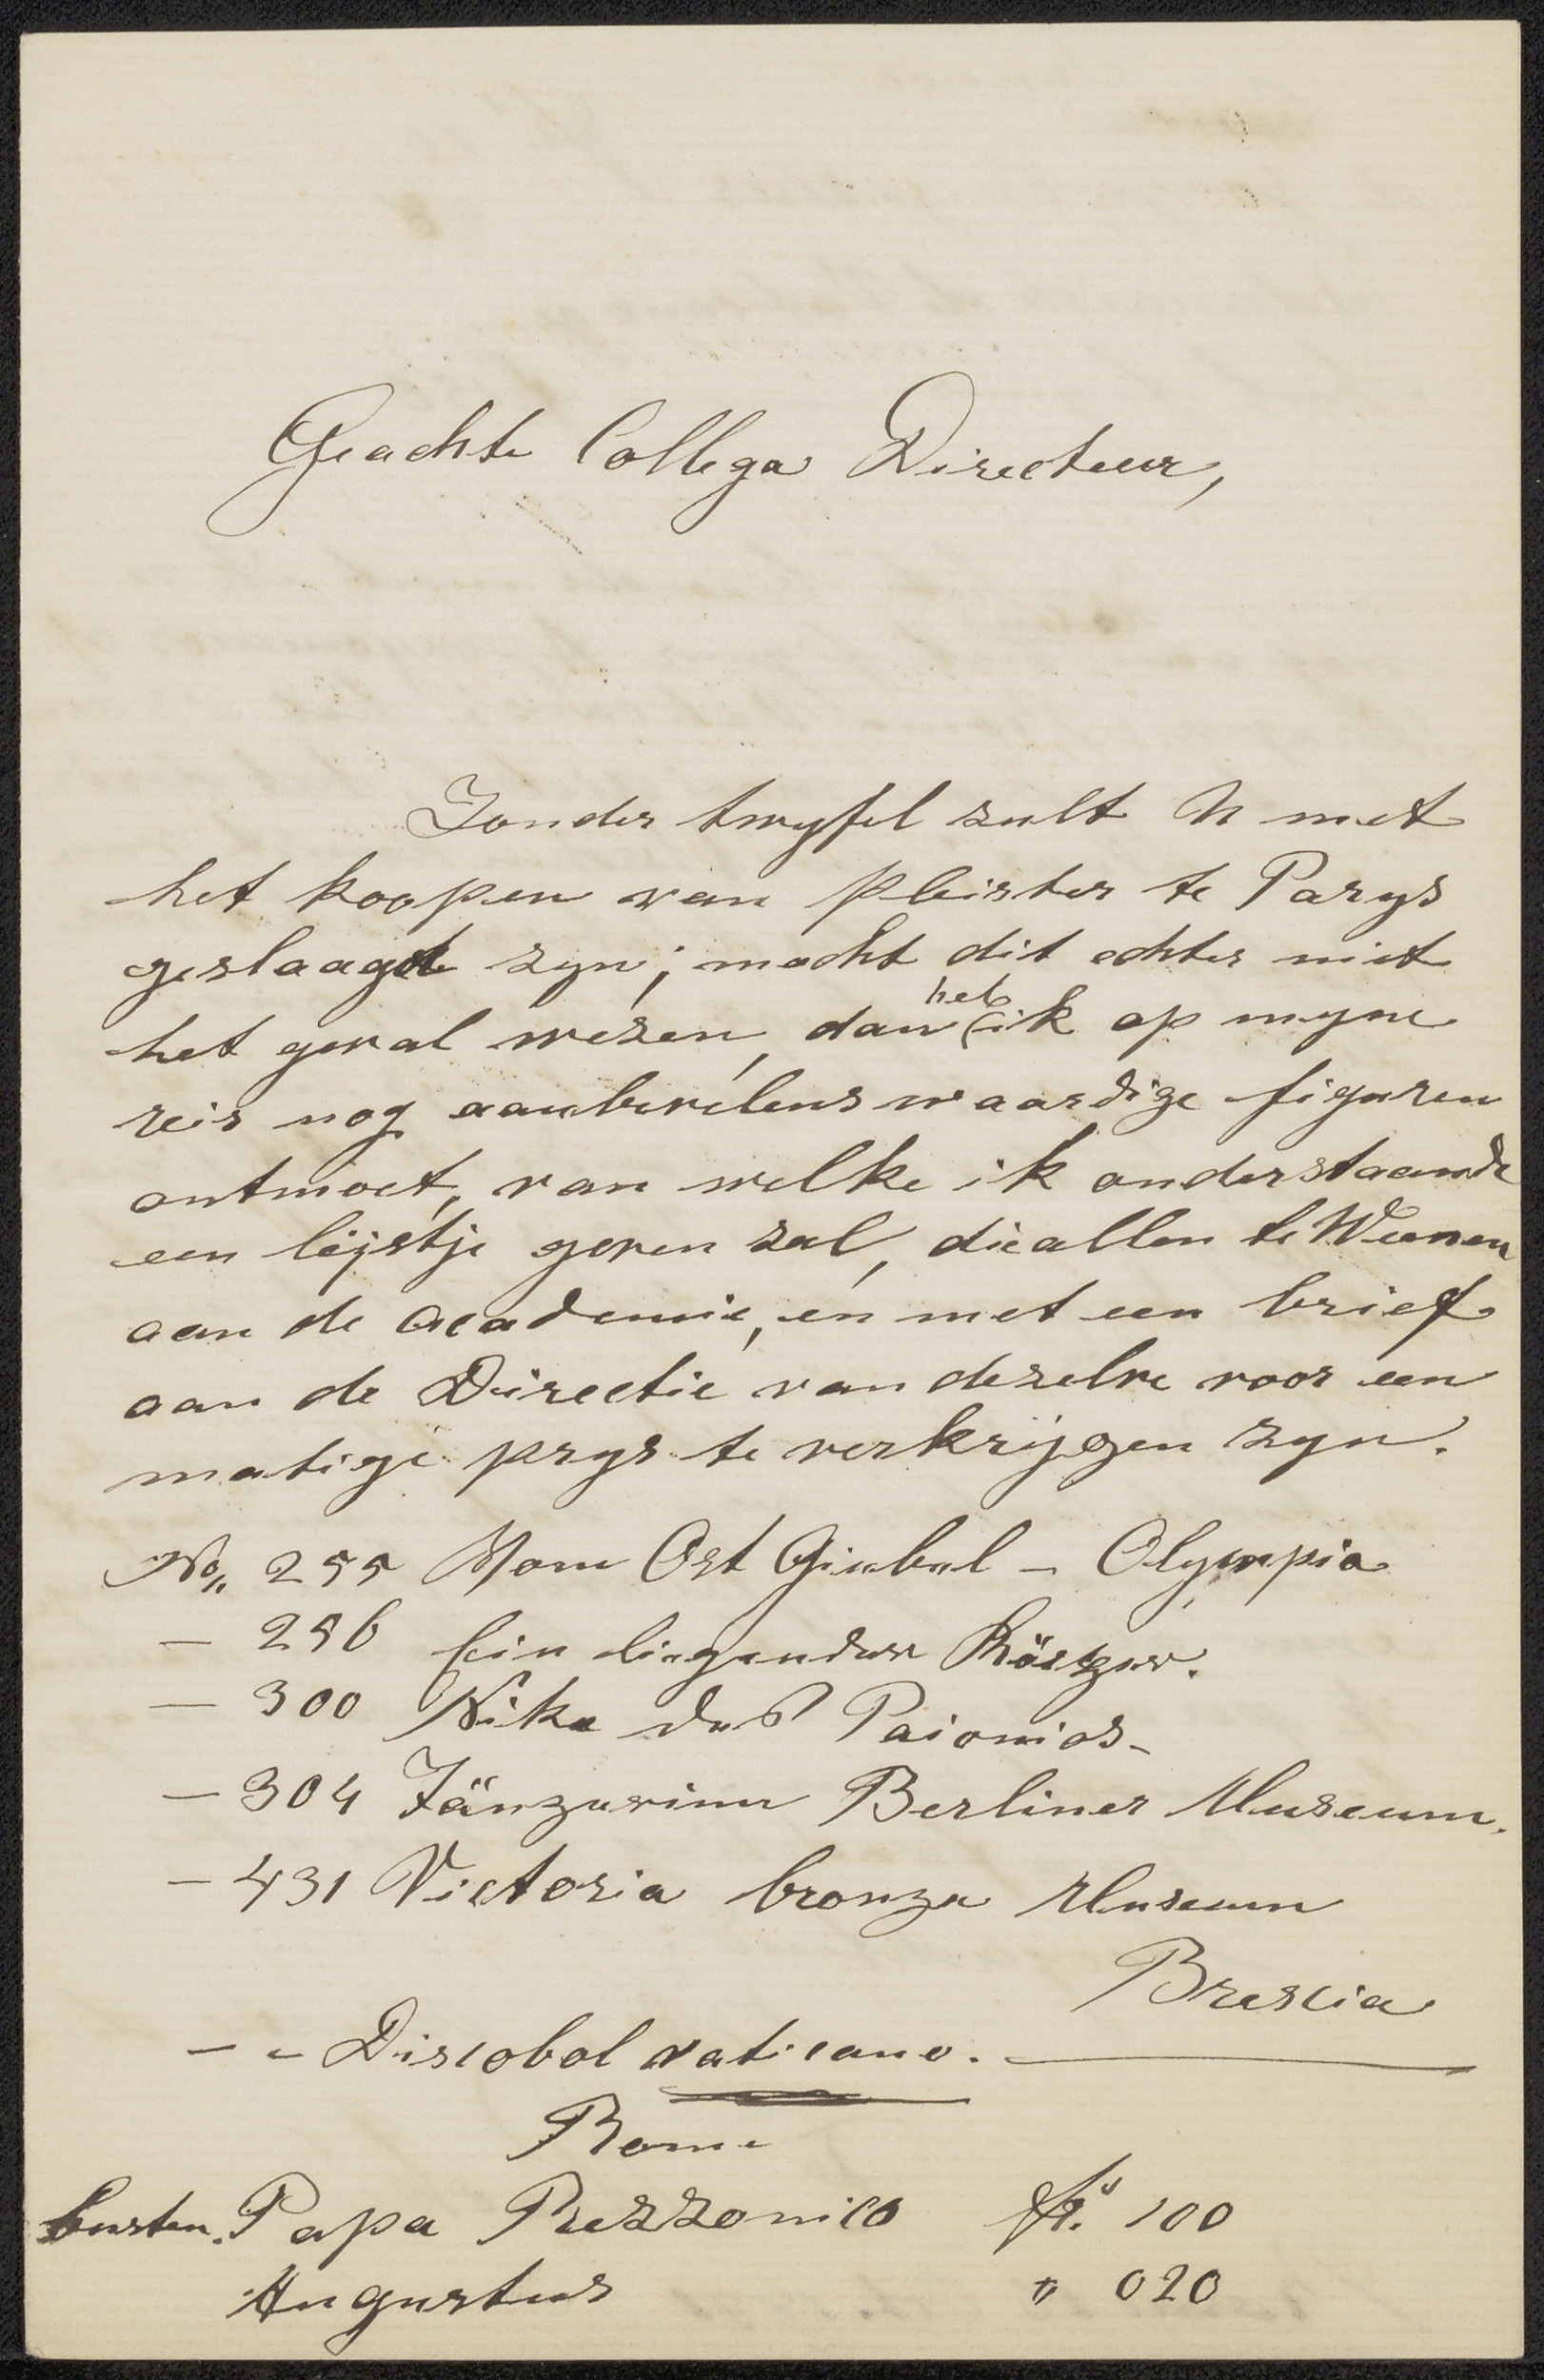 Geachte Collega Directeur,
Zonder twyfel zult U met
het koopen van pleister te Parys
geslaagd zyn; mocht dit echter niet
het geval wezen, dan heb ik op myne
reis nog aanbevelenswaardige figuren
ontmoet, van welke ik onderstaande
een lijstje geven zal, die allen te Weenen
aan de academie, en met een brief
aan de Directie van dezelve voor een
matige prys te verkrijgen zyn.
No. 255 Vom Ost Giebel - Olympia
- 256 Ein liegender
- 300 Nike des Paionios -
- 304 Tänzerinn Berliner Museum.
- 431 Victoria bronze Museum
Brescia
- - Discobol vaticano.
Rome
busten. Papa Rezzonico fr. 100
Augustus " 020